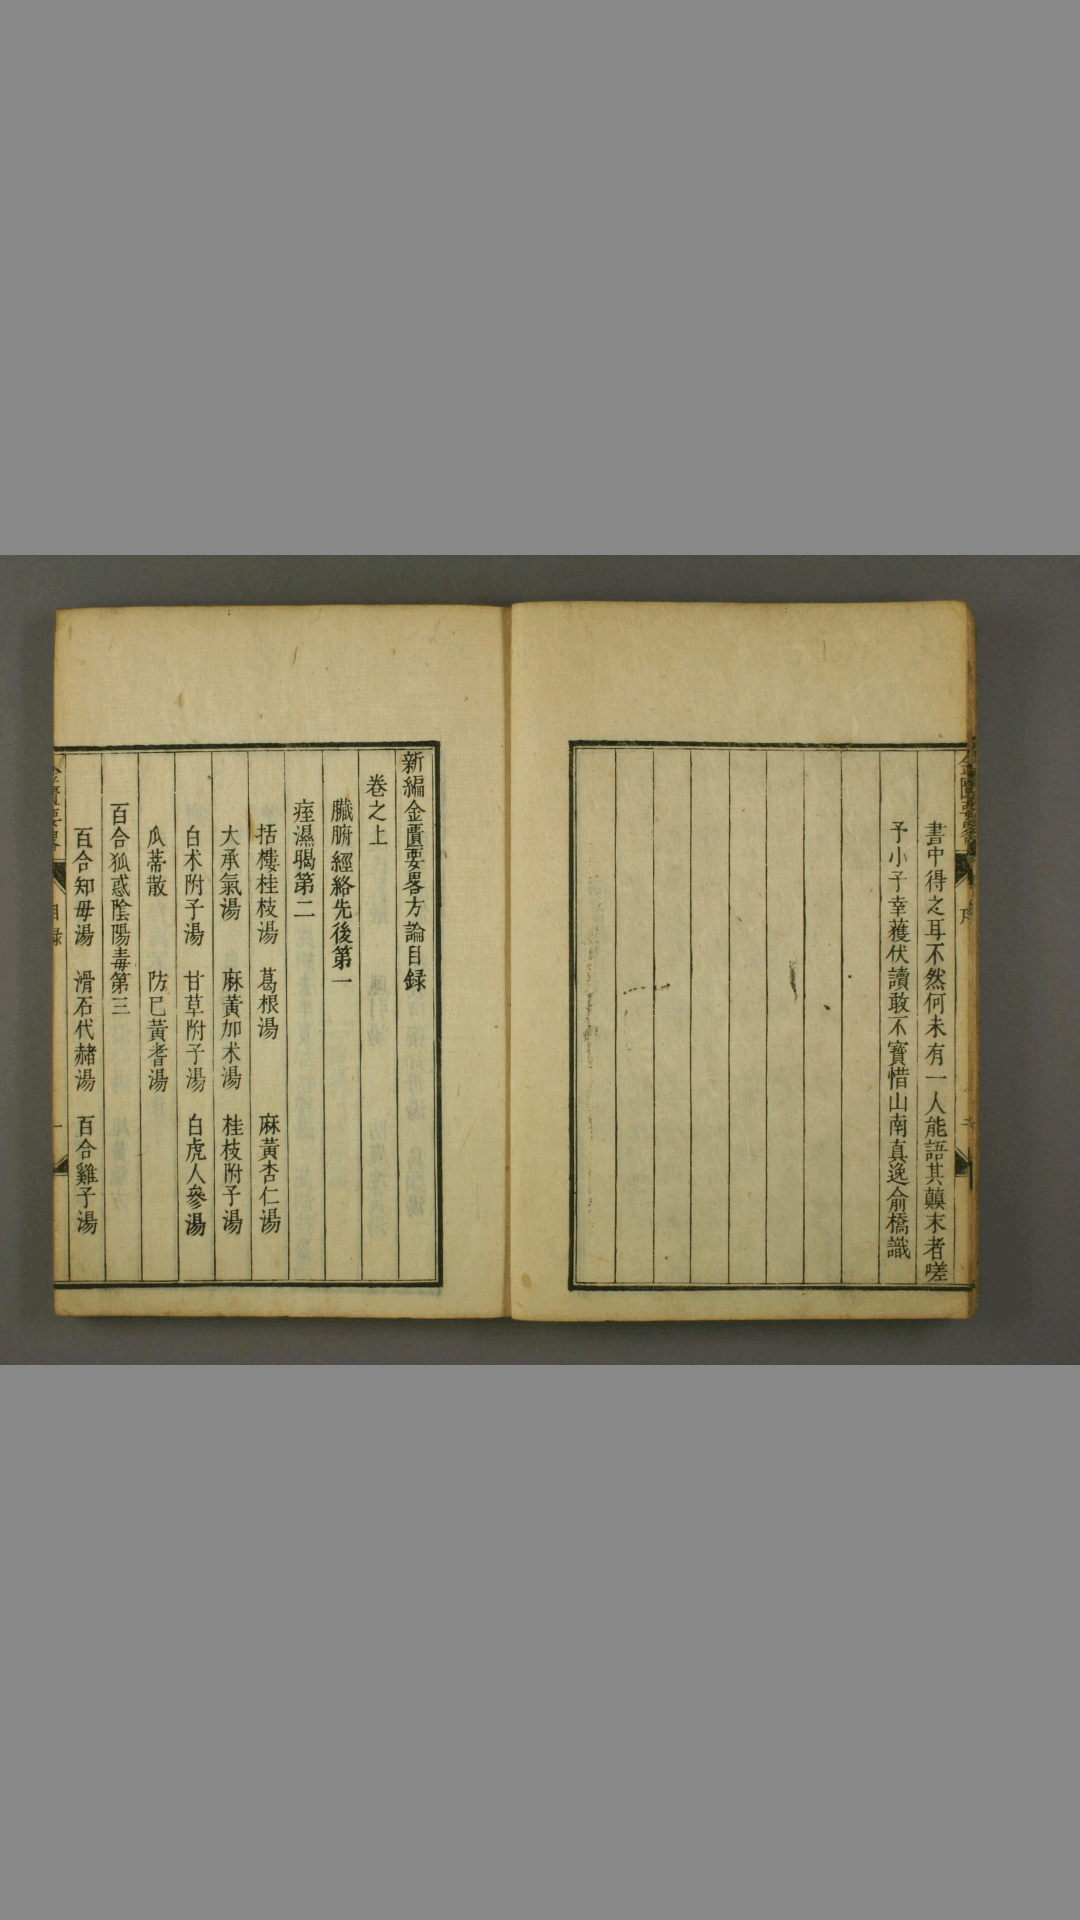 書中得之耳不然何未有一人能語其蘱末者嗟
予小子幸獲伏讀敢不寳惜山南真逸俞橋識
新編金匱要畧方論目録
卷之上
臟腑經絡先後第一
痓濕暍第二
括樓桂枝湯 葛根湯 麻黃杏仁湯
大承氣湯 麻黃加术湯 桂枝附子湯
白术附子湯 甘草附子湯 白虎人參湯
瓜蒂散 防已黃耆湯
百合狐惑隂陽毒第三
百合知毋湯 滑石代赭湯 百合雞子湯
目録